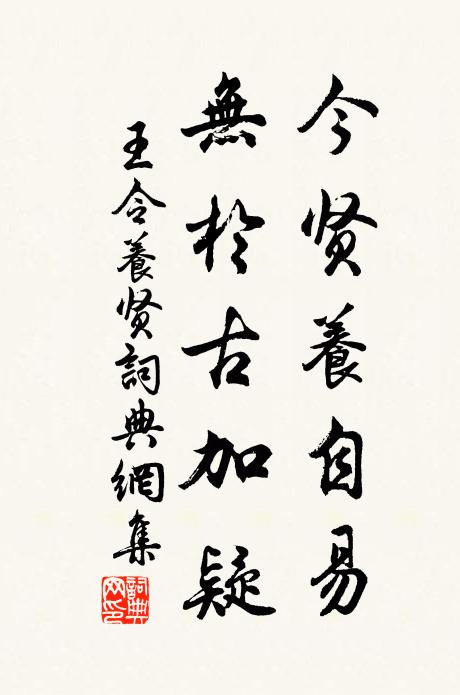 今贤養自易
無於古加疑
王令養贤詞典網集
詞典网印